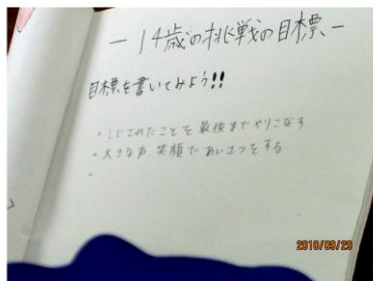 －14歳の挑戦の目標－
目標を書いてみよう!!
・されたことを最後までやりこなす
・大きな声 笑顔であいさつをする
・
2010/09/29